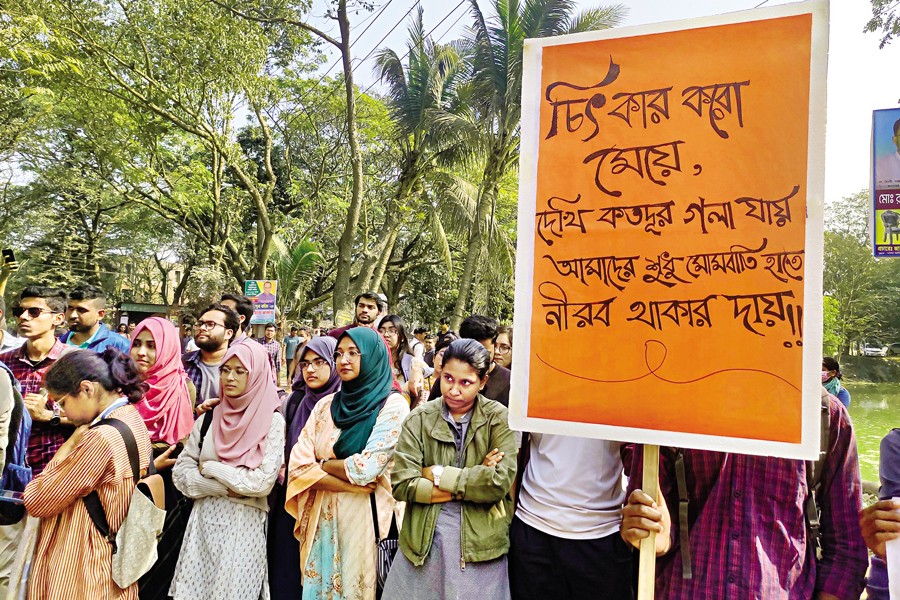 চিৎকার করো
মেয়ে,
দেখি কতদূর গলা যায়
আমাদের শুধু মোমবাতি হাতে
নীরব থাকার দায়!!
মোঃ র